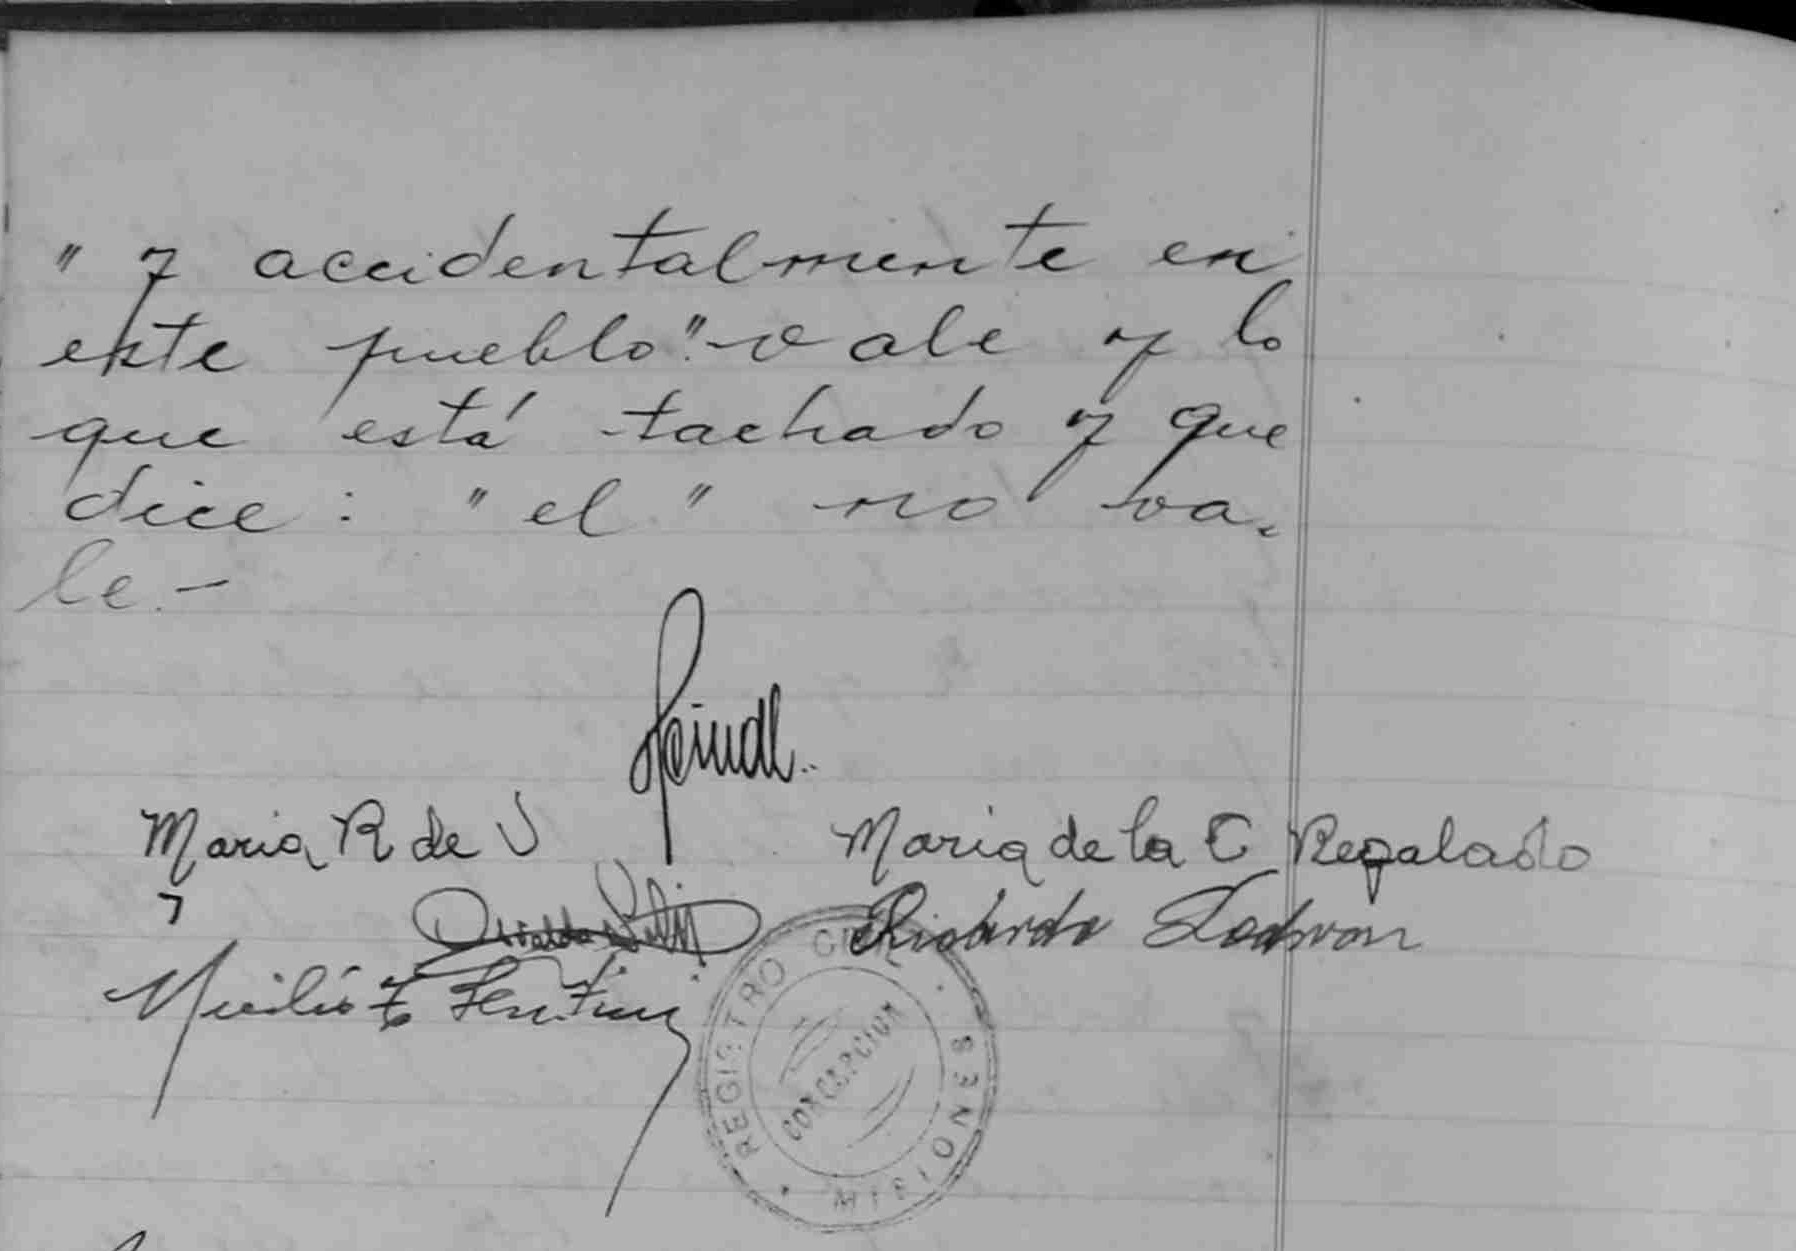 " y accidentalmente en
este pueblo". vale y lo
que está tachado y que
dice : " el " no va-
le.-
Maria R de V
Maria de la C Regalado
Ricardo Ledwon
REGISTRO CIVIL
CONCEPCION
MISIONES